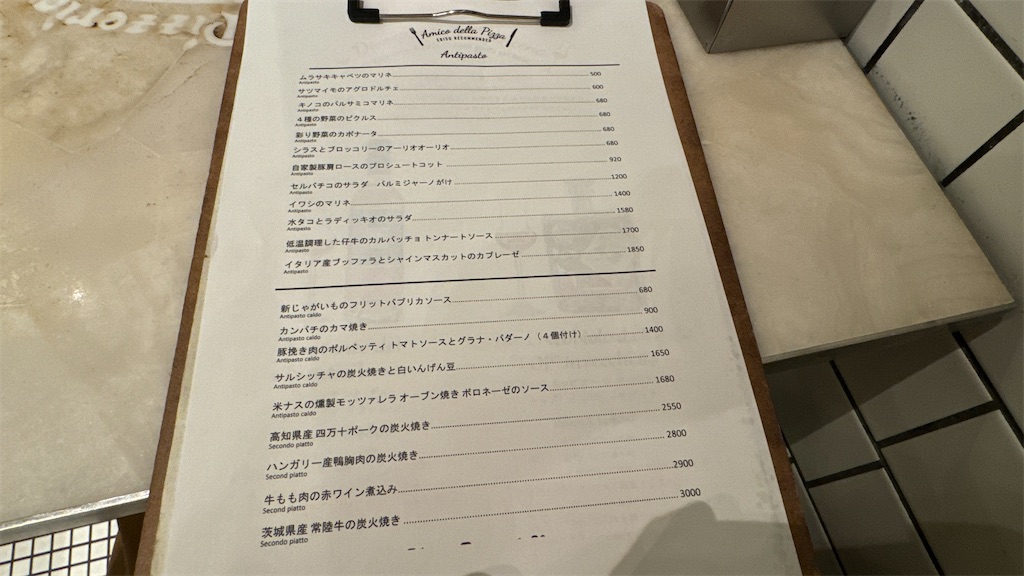 Pizzeria
Amico della Pizza
EBISU RECOMMENDED
Antipasto
ムラサキキャベツのマリネ 500
Antipasto
サツマイモのアグロドルチェ 600
Antipasto
キノコのバルサミコマリネ 680
Antipasto
４種の野菜のピクルス 680
Antipasto
彩り野菜のカポナータ 680
Antipasto
シラスとブロッコリーのアーリオオーリオ 680
Antipasto
自家製豚肩ロースのプロシュートコット 920
Antipasto
セルバチコのサラダ　パルミジャーノがけ 1200
Antipasto
イワシのマリネ 1400
Antipasto
水タコとラディッキオのサラダ 1580
Antipasto
低温調理した仔牛のカルパッチョ トンナートソース 1700
Antipasto
イタリア産ブッファラとシャインマスカットのカプレーゼ 1850
Antipasto
新じゃがいものフリットパプリカソース 680
Antipasto caldo
カンパチのカマ焼き 900
Antipasto caldo
豚挽き肉のポルペッティ トマトソースとグラナ・パダーノ（４個付け） 1400
Antipasto caldo
サルシッチャの炭火焼きと白いんげん豆 1650
Antipasto caldo
米ナスの燻製モッツァレラ オーブン焼き ボロネーゼのソース 1680
Antipasto caldo
高知県産 四万十ポークの炭火焼き 2550
Secondo piatto
ハンガリー産鴨胸肉の炭火焼き 2800
Second piatto
牛もも肉の赤ワイン煮込み 2900
Secondo piatto
茨城県産 常陸牛の炭火焼き 3000
Secondo piatto